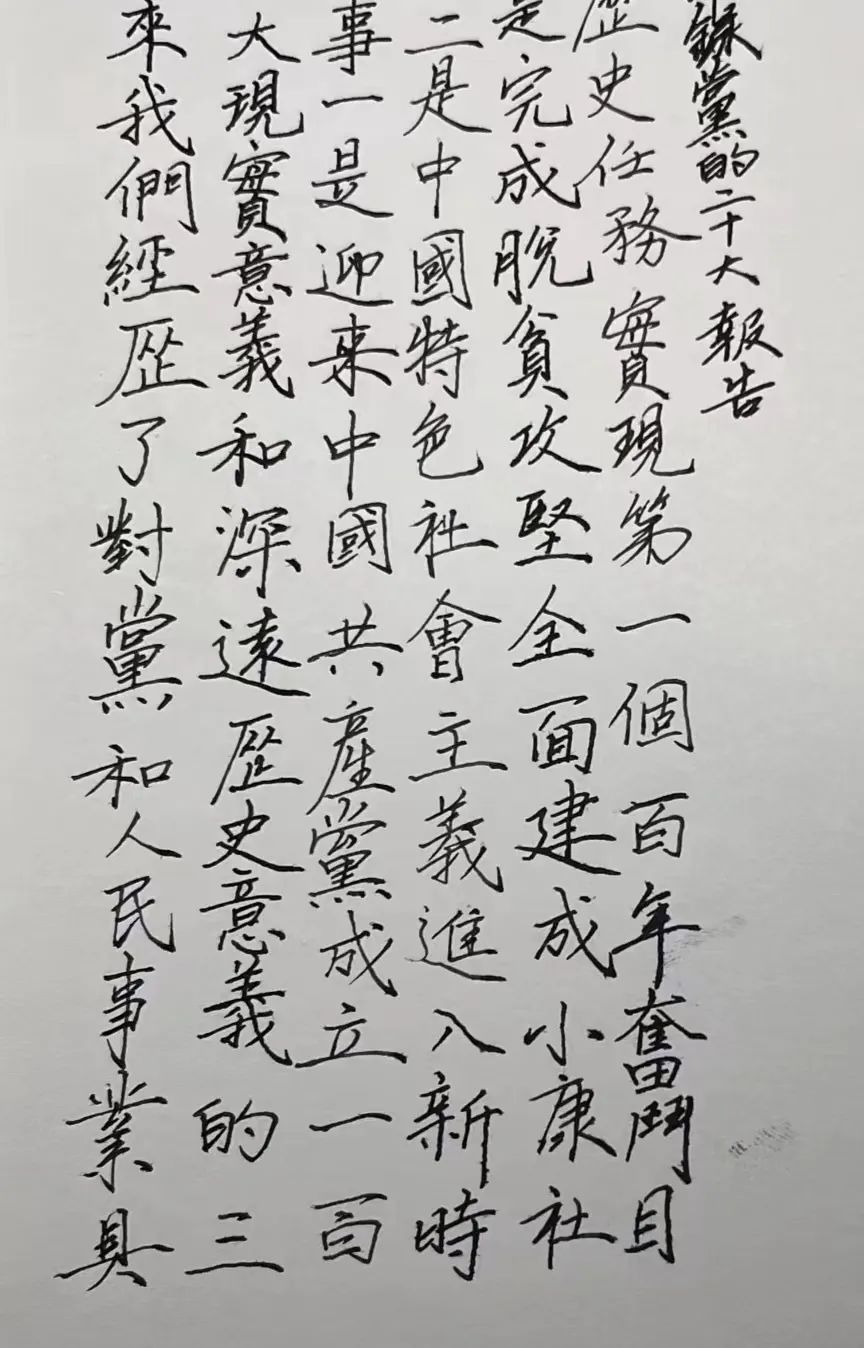 來我們經歷了對黨和人民事業具
大現實意義和深遠歷史意義的三
事一是迎来中國共產黨成立一百
二是中國特色社會主義進入新時
是完成脫貧攻堅全面建成小康社
歷史任務實現第一個百年奮鬥目
錄黨的二十大報告